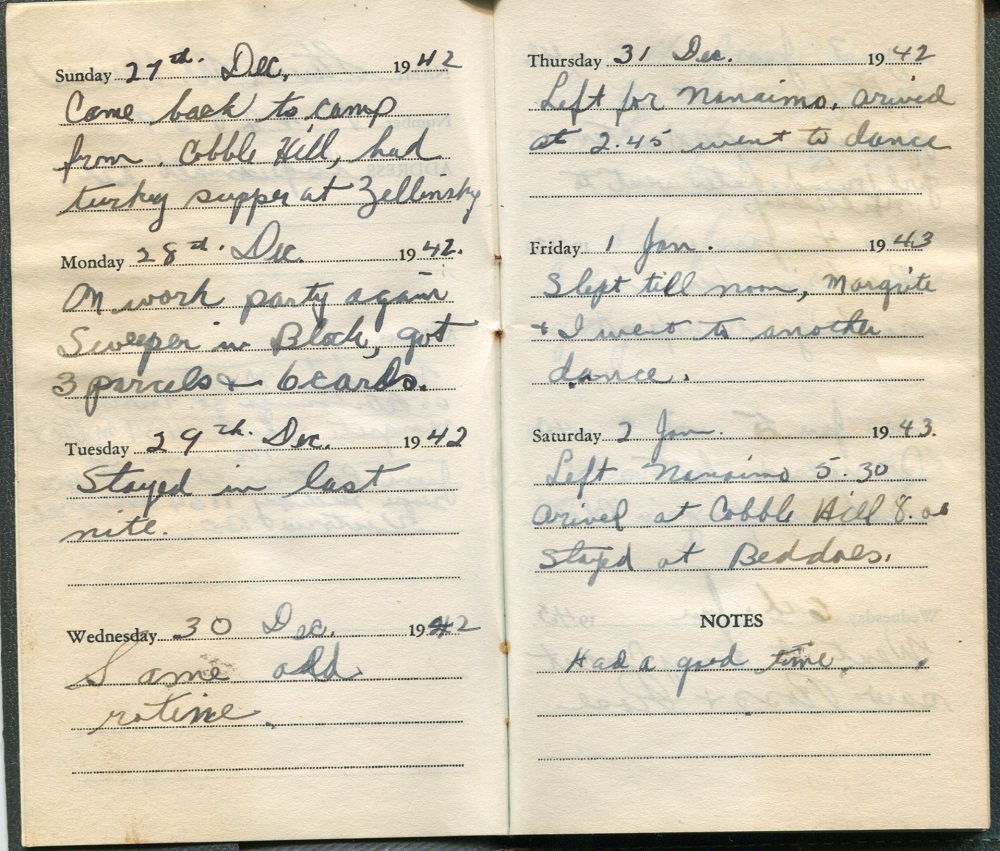 Sunday 27th. Dec. 1942
Came back to camp
from. Cobble Hill, had
turkey supper at Zellinsky
Monday 28th. Dec. 1942.
On work party again
Sweeper in Block, got
3 parcels & 6 cards.
Tuesday 29th. Dec. 1942
Stayed in last
nite.
Wednesday 30 Dec. 1942
Same old
rotine.
Thursday 31 Dec. 1942
Left for Nanaimo, arived
at 2.45 went to dance
Friday 1 Jan. 1943
Slept till noon, Margrite
& I went to another
dance.
Saturday 2 Jan. 1943.
Left Nanaimo 5.30
arived at Cobble Hill 8.00
Stayed at Beddoes.
NOTES
Had a good time.